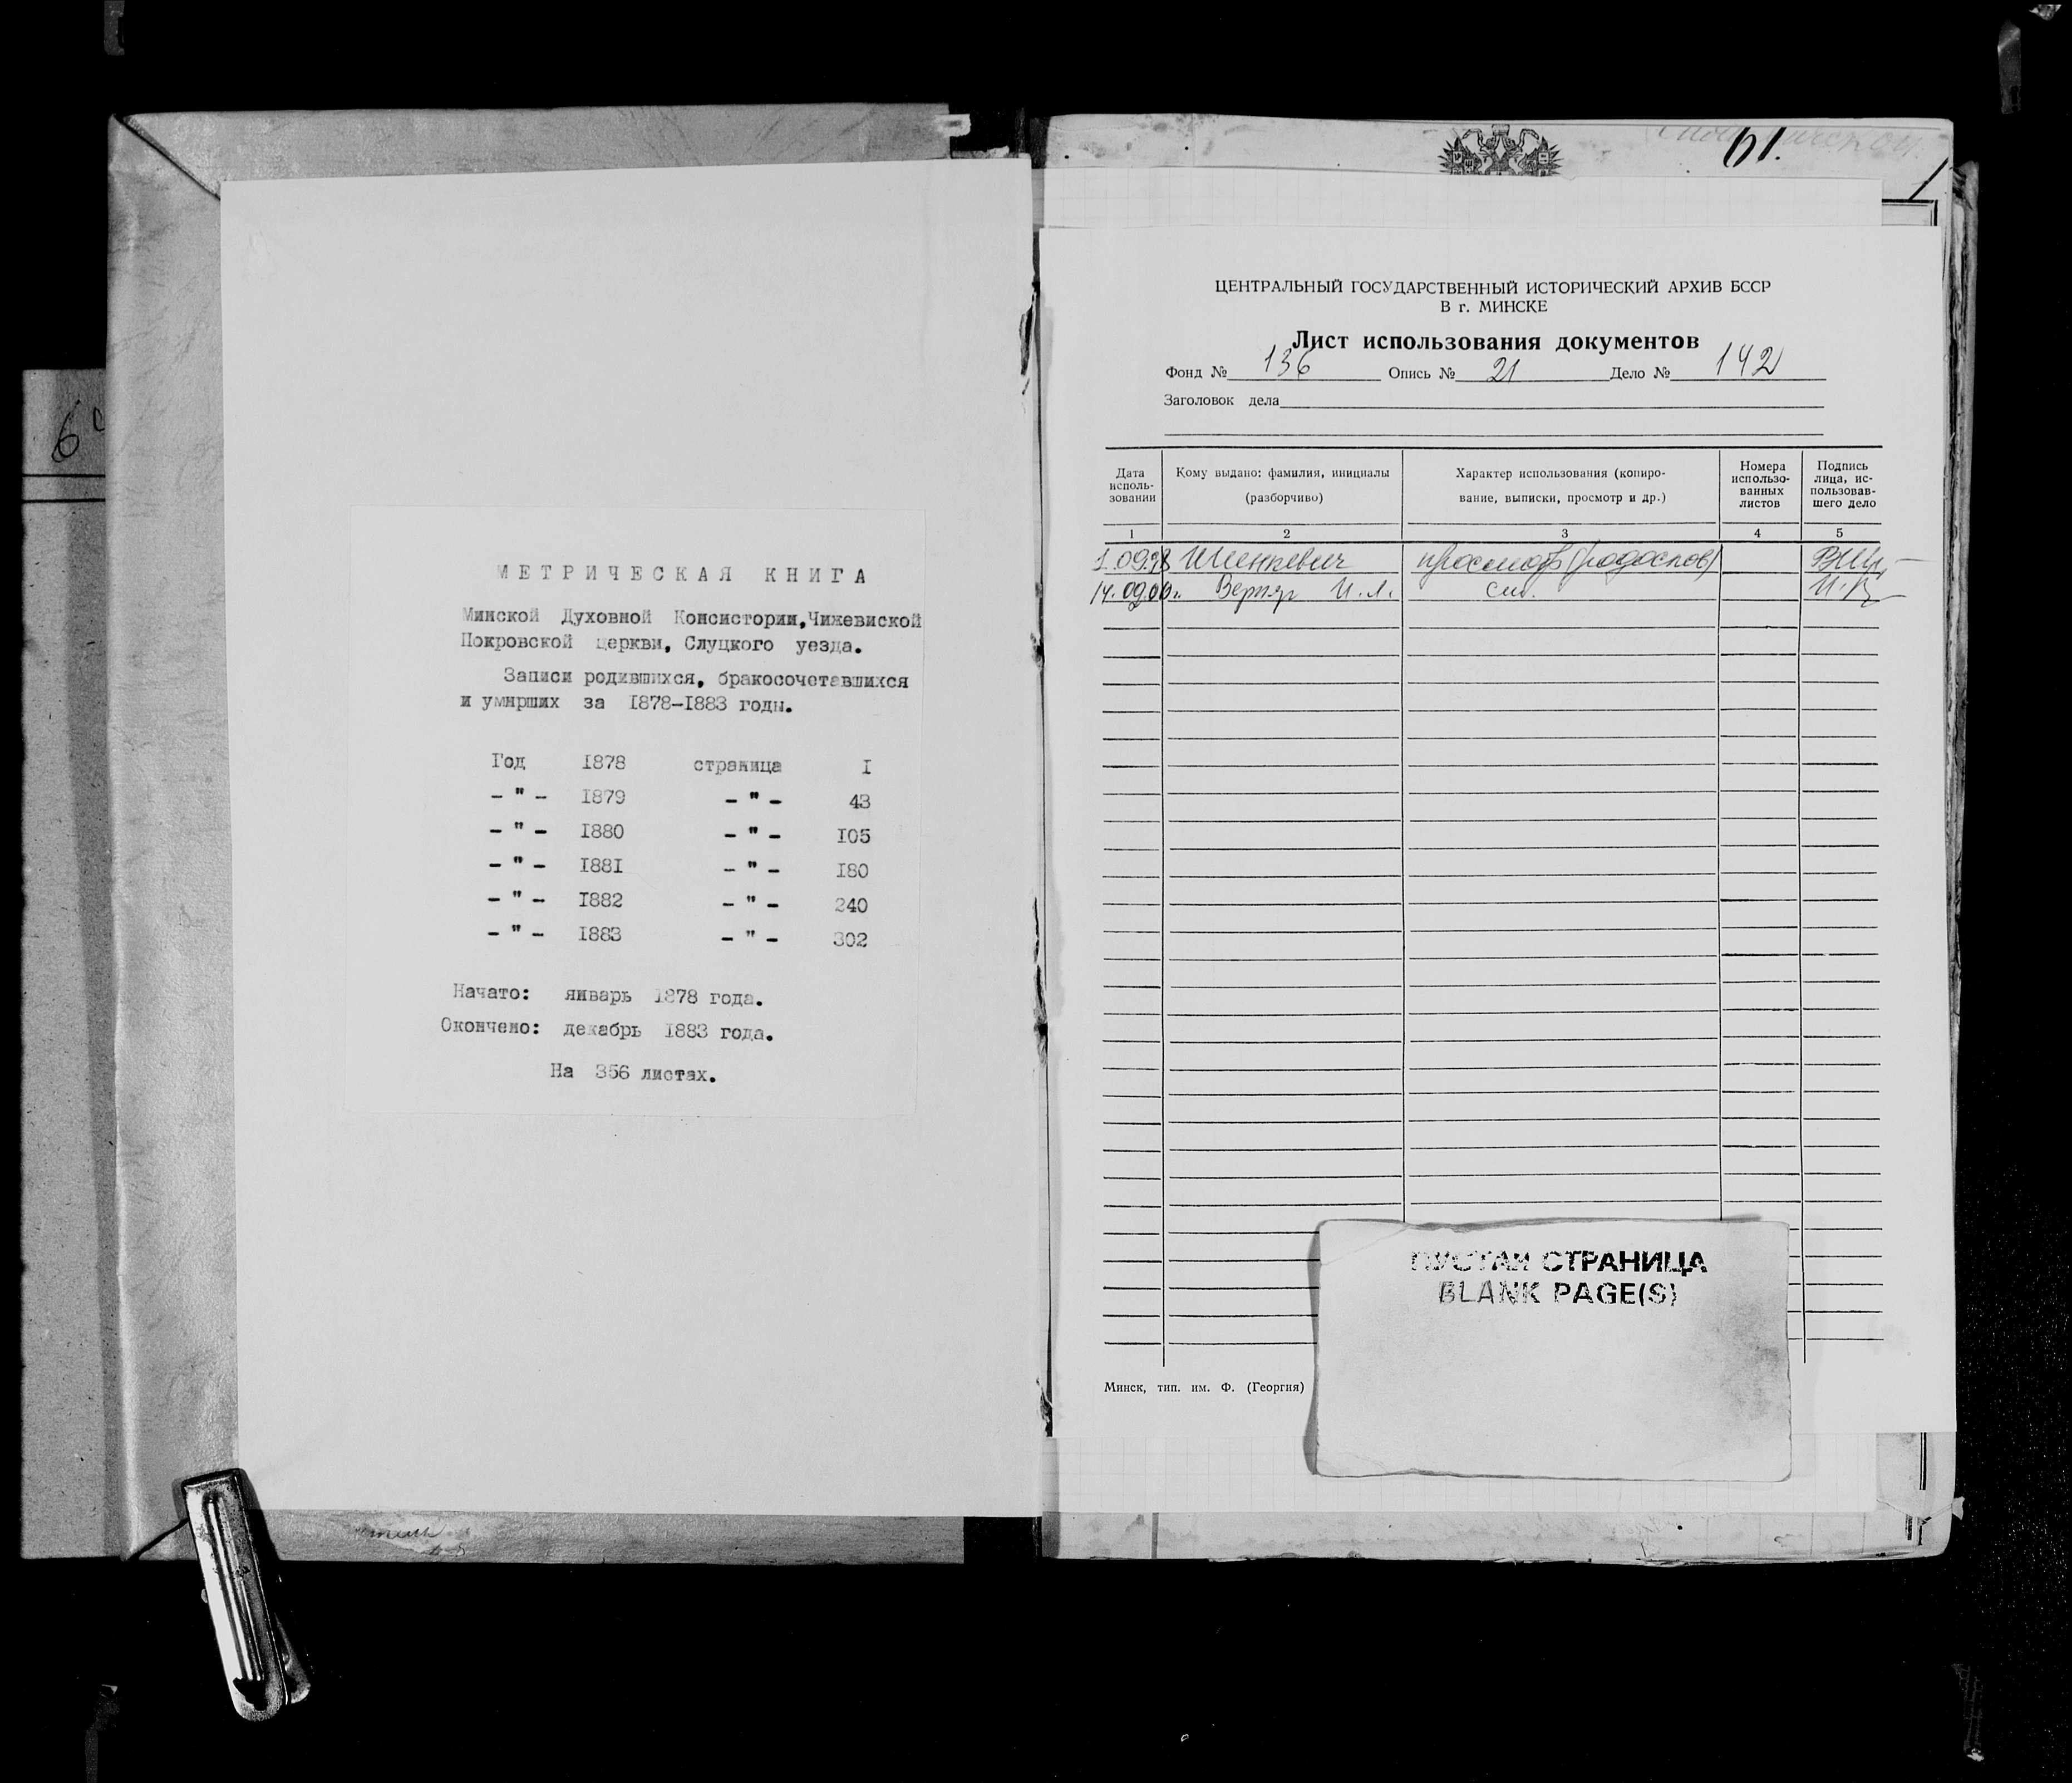 6
МЕТРИЧЕСКАЯ КНИГА
Минской Духовной Консистории, Чижевиской
Покровской церкви, Слуцкого уезда.
Записи родившихся, бракосочетавшихся
и умирших за I878-I883 годы.
Год I878 страница I
- " - I879 - " - 43
- " - I880 - " - I05
- " - I88I - " - I80
- " - I882 - " - 240
- " - I883 - " - 302
Начато: январь I878 года.
Окончено: декабрь I883 года.
На 356 листах.
61.
1
ЦЕНТРАЛЬНЫЙ ГОСУДАРСТВЕННЫЙ ИСТОРИЧЕСКИЙ АРХИВ БССР
В г. МИНСКЕ
Лист использования документов
Фонд № 136 Опись № 21 Дело № 142
Заголовок дела
Дата исполь-зовании
Кому выдано: фамилия, инициалы (разборчиво)
Характер использования (копиро-вание, выписки, просмотр и др.)
Номера использо-ванных листов
Подпись лица, ис-пользовав-шего дело
1 2 3 4 5
1.09.98 просмотр (родослов)
14.09.00г. И.Л. см.
ПУСТАЯ СТРАНИЦА
BLANK PAGE(S)
Минск, тип. им. Ф. (Георгия)